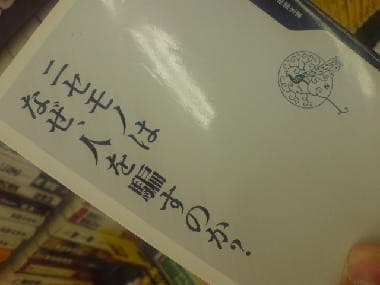 ニセモノは
なぜ、人を騙すのか?